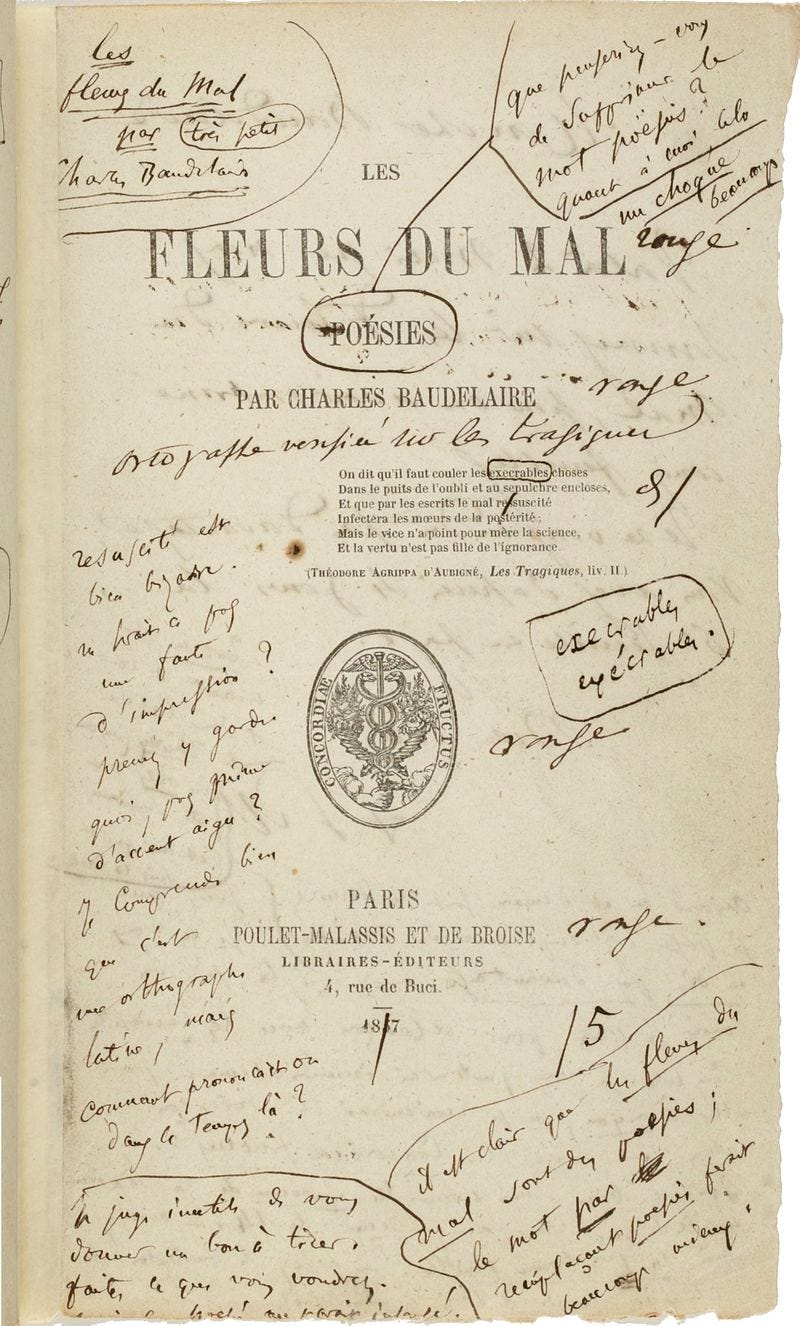 les
fleurs du Mal
par très petit
Charles Baudelaire
que penseriez-vous
de supprimer le
mot poësies?
quant à moi, cela
me choque
beaucoup
LES
FLEURS DU MAL
rouge
POÉSIES
PAR CHARLES BAUDELAIRE
rouge
ortografe verifiée sur les tragiques
On dit qu'il faut couler les execrables choses
Dans le puits de l'oubli et au sepulchre encloses,
Et que par les escrits le mal resuscité
Infectera les mœurs de la postérité;
Mais le vice n'a point pour mère la science,
Et la vertu n'est pas fille de l'ignorance.
(THÉODORE AGRIPPA D'AUBIGNÉ, Les Tragiques, liv. II.)
resuscité est
bien bizarre.
ne serait-ce pas
une faute
d'impression?
prenez y garde
quoi, pas même
d'accent aigu?
je comprends bien
que c'est
une orthographe
latine, mais
comment prononçait-on
dans ce temps là?
execrables
exécrables.
CONCORDIAE FRUCTUS
rouge
PARIS
POULET-MALASSIS ET DE BROISE
rouge.
LIBRAIRES-ÉDITEURS
4, rue de Buci.
1857
/5
il est clair que les fleurs du
mal sont des poësies;
le mot par
remplaçant poësies ferait
beaucoup mieux.
Je juge inutile de vous
donner un bon à tirer.
faites ce que vous voudrez.